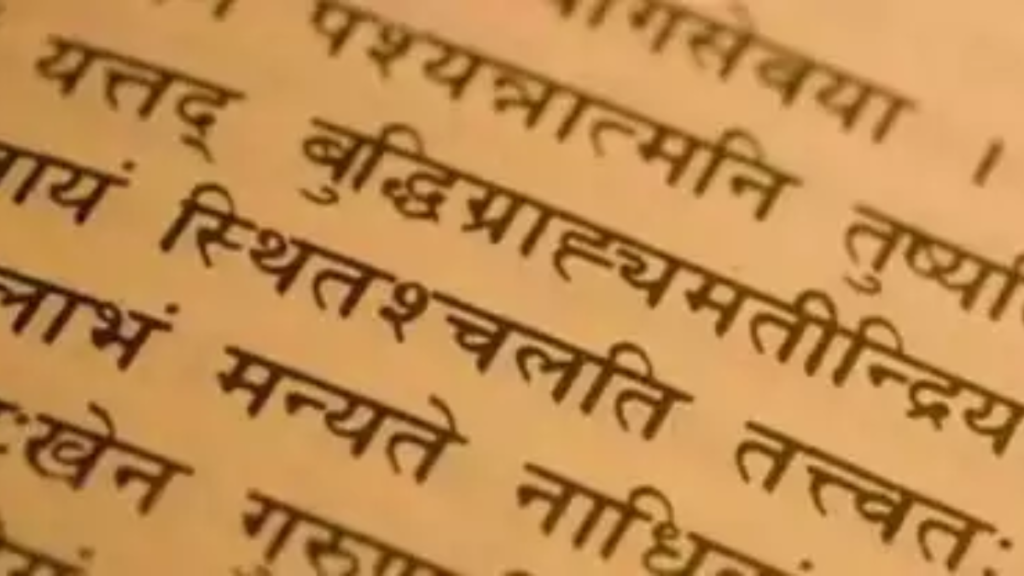 गसेवया ।
पश्यन्नात्मनि तुष्य
यत्तद् बुद्धिग्राह्यमतीन्द्रिय
स्थितश्चलति तत्त्वतः
लाभं मन्यते
ःखेन